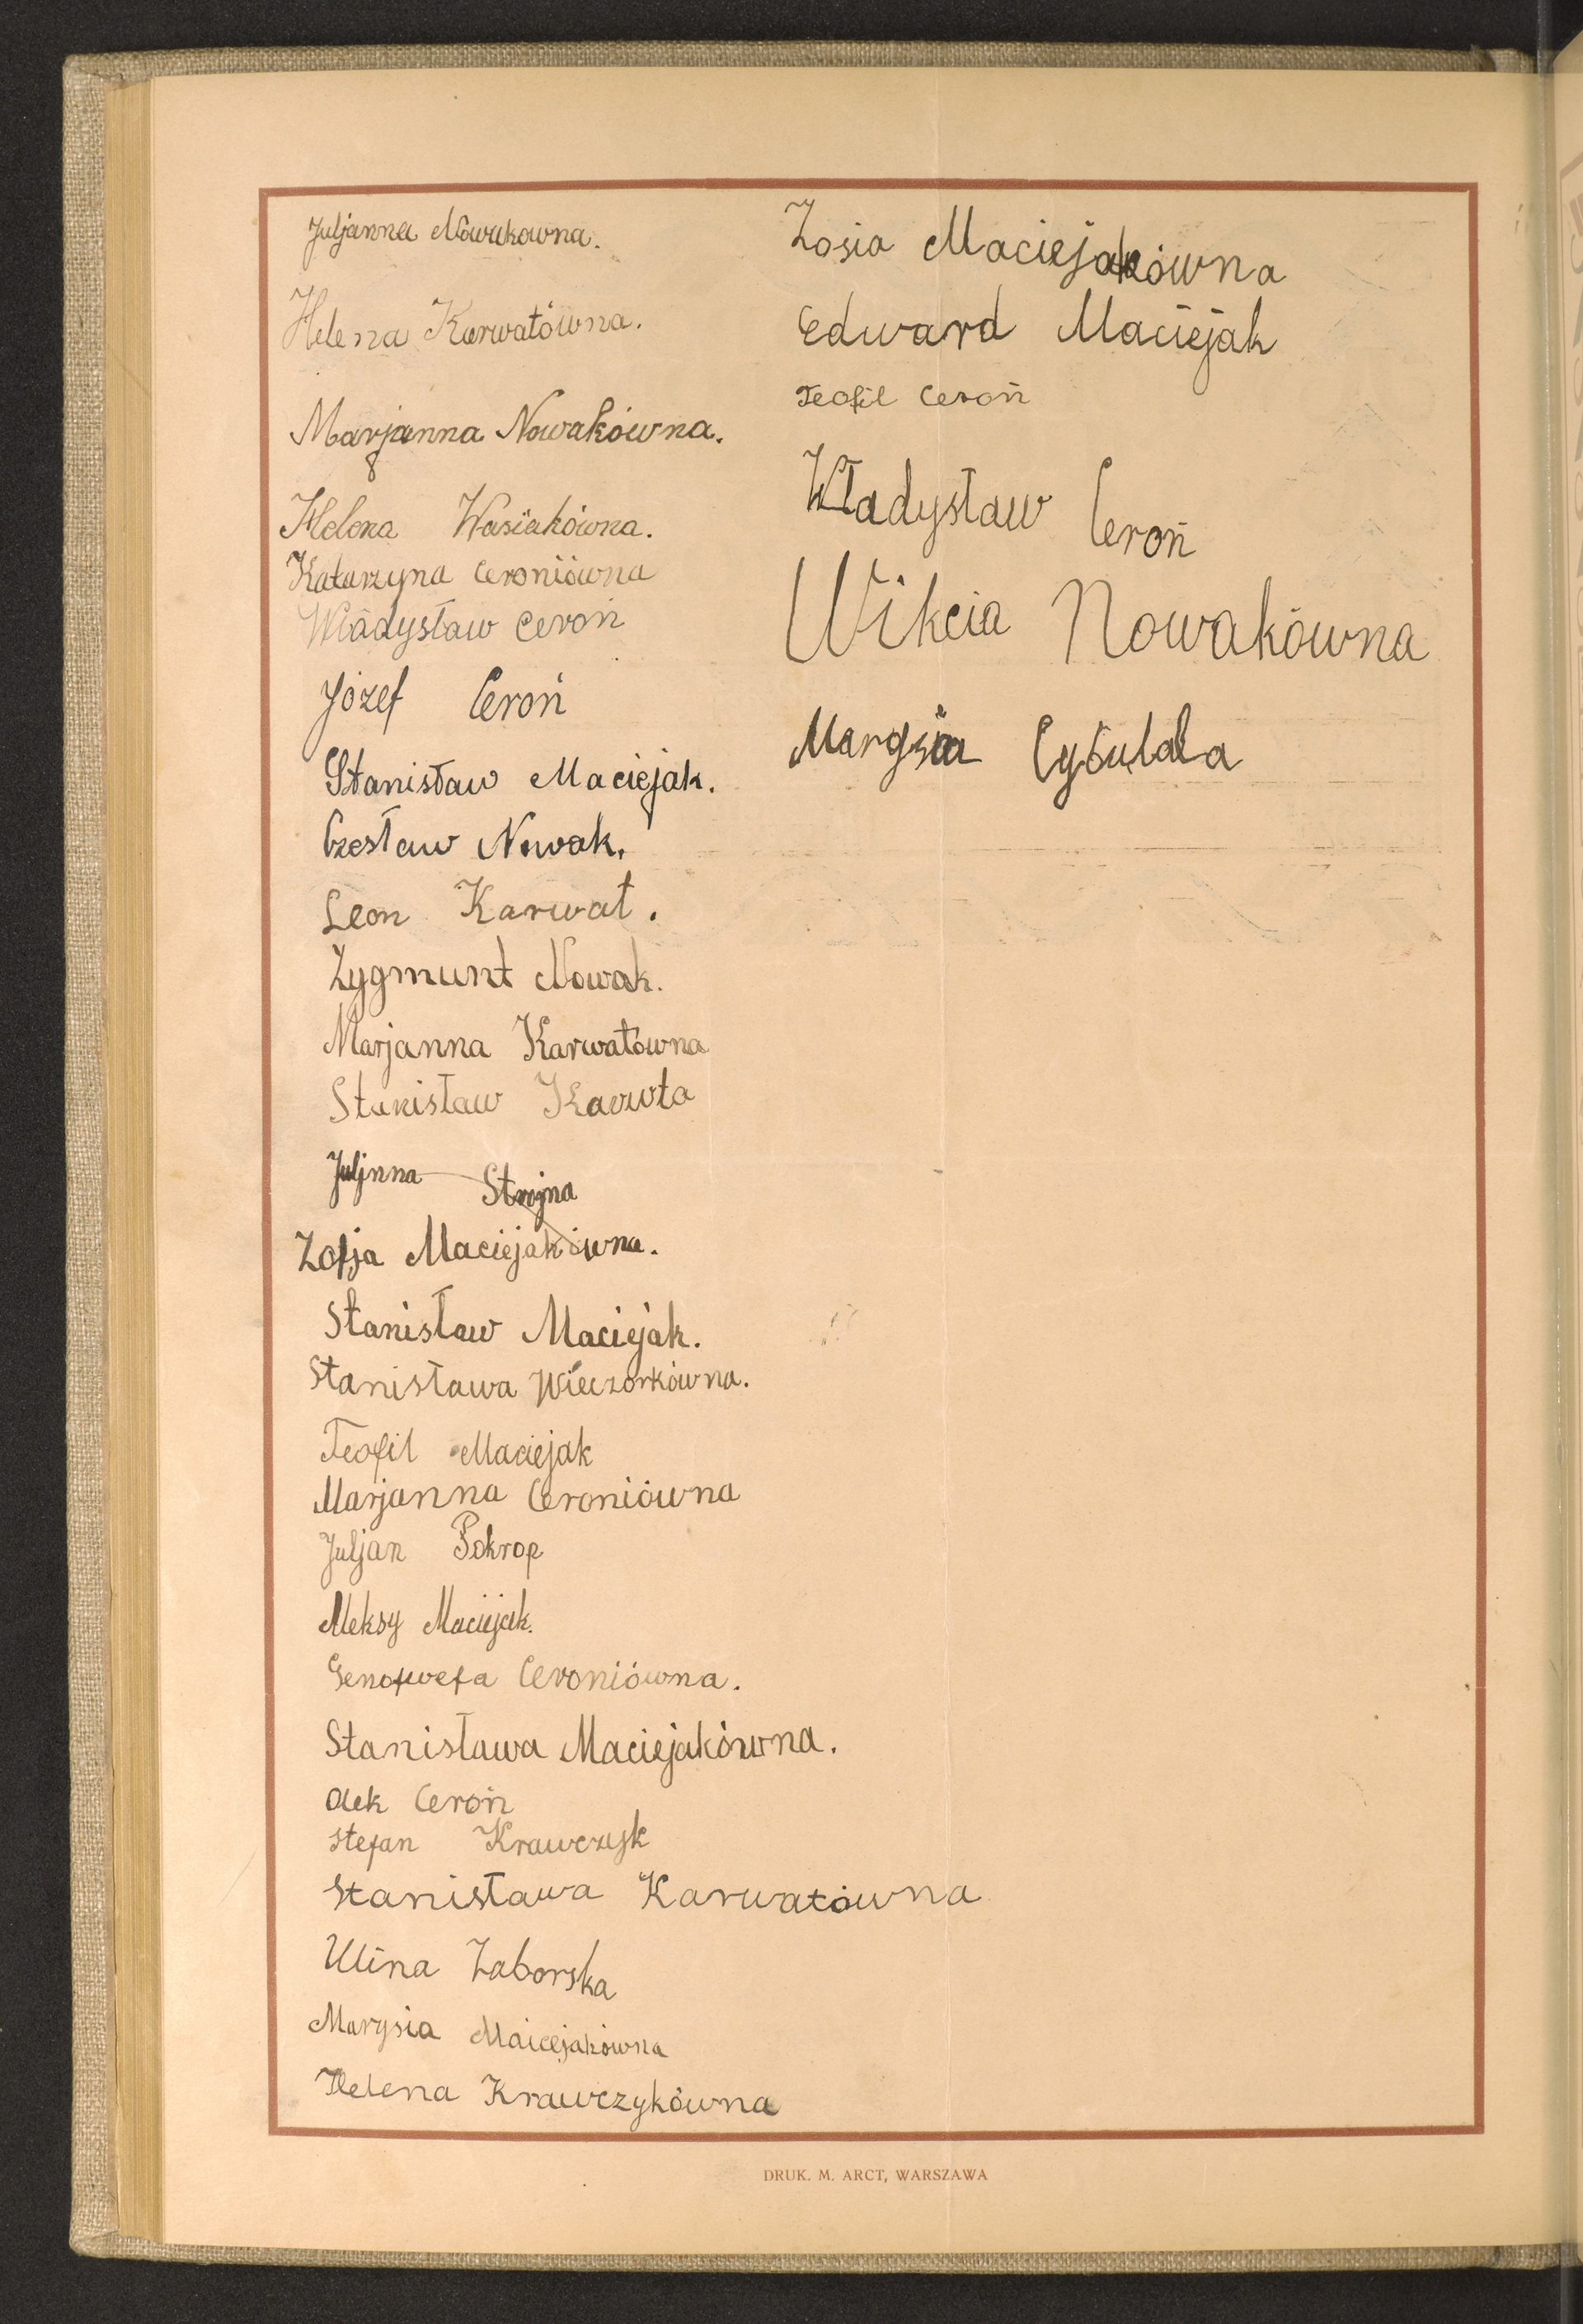 Juljanna Nowakowna.
Helena Karwatówna.
Marjanna Nowakówna.
Helena Wasiakówna.
Katarzyna Ceroniówna
Władysław Ceroń
Józef Ceroń
Stanisław Maciejak.
Czesław Nowak.
Leon Karwat.
Zygmunt Nowak.
Marjanna Karwatówna
Stanisław Karwta
Juljnna Strojna
Zofja Maciejakówna.
Stanisław Maciejak.
Stanisława Wieczorkówna.
Teofil Maciejak
Marjanna Ceroniówna
Juljan Pokrop
Aleksy Maciejak.
Genofwefa Ceroniówna.
Stanisława Maciejakówna.
Olek Ceroń
Stefan Krawczyk
Stanisława Karwatówna
Ulina Zaborska
Marysia Maicejakówna
Helena Krawczykówna
Zosia Maciejakówna
Edward Maciejak
Teofil Ceroń
Władysław Ceroń
Wikcia Nowakówna
Marysia
DRUK. M. ARCT, WARSZAWA